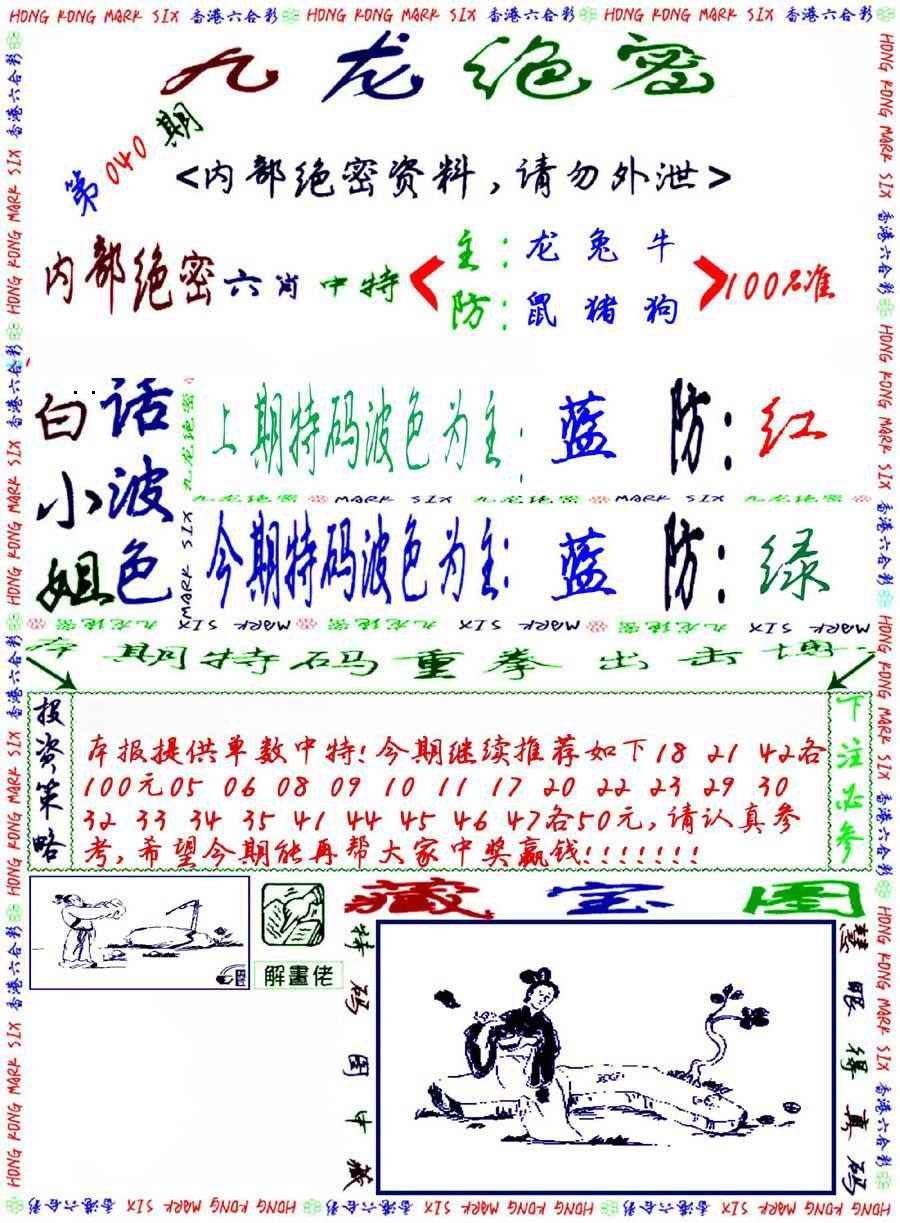 HONG KONG MARK SIX 香港六合彩 HONG KONG MARK SIX 香港六合彩 HONG KONG MARK SIX 香港六合彩
九龙绝密
第040期
<内部绝密资料,请勿外泄>
内部绝密六肖中特
主:龙兔牛
防:鼠猪狗
100%准
白小姐
话波色
上期特码波色为主:蓝 防:红
九龙绝密 MARK SIX 九龙绝密 MARK SIX 九龙绝密
今期特码波色为主:蓝 防:绿
MARK SIX 九龙绝密 MARK SIX 九龙绝密 MARK SIX 九龙绝密
本期特码重拳出击
投资策略
本报提供单数中特!今期继续推荐如下18 21 42各
100元05 06 08 09 10 11 17 20 22 23 29 30
32 33 34 35 41 44 45 46 47各50元,请认真参
考,希望今期能再帮大家中奖赢钱!!!!!!!
下注必参
解畫佬
藏宝图
特码图中藏
慧眼得真码
HONG KONG MARK SIX 香港六合彩 HONG KONG MARK SIX 香港六合彩 HONG KONG MARK SIX 香港六合彩